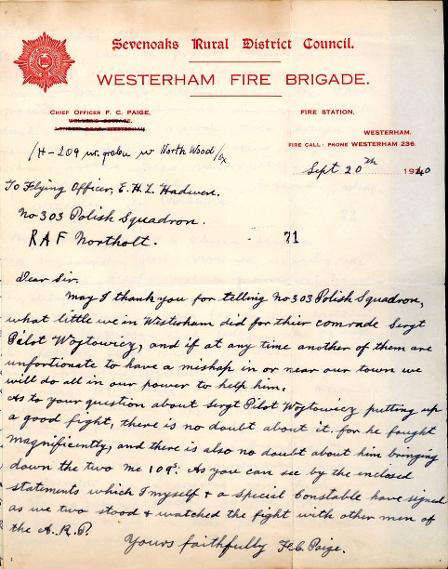 Sevenoaks Rural District Council.
WESTERHAM FIRE BRIGADE.
CHIEF OFFICER F. C. PAIGE.
FIRE STATION,
WESTERHAM.
FIRE CALL: PHONE WESTERHAM 236.
/H-209 w North Wood/
Sept 20th 1940
To Flying Officer, E. H. L. Hadwen.
No 303 Polish Squadron.
RAF Northolt.
71
Dear Sir.
May I thank you for telling No 303 Polish Squadron,
what little we in Westerham did for their comrade Sergt
Pilot Wojtowicz, and if at any time another of them are
unfortunate to have a mishap in or near our town we
will do all in our power to help him.
As to your question about Sergt Pilot Wojtowicz putting up
a good fight, there is no doubt about it. for he fought
magnificently, and there is also no doubt about him bringing
down the two Me 109s. As you can see by the enclosed
statements which I myself & a Special Constable have signed
as we two stood & watched the fight with other men of
the A.R.P.
Yours faithfully F. C. Paige.